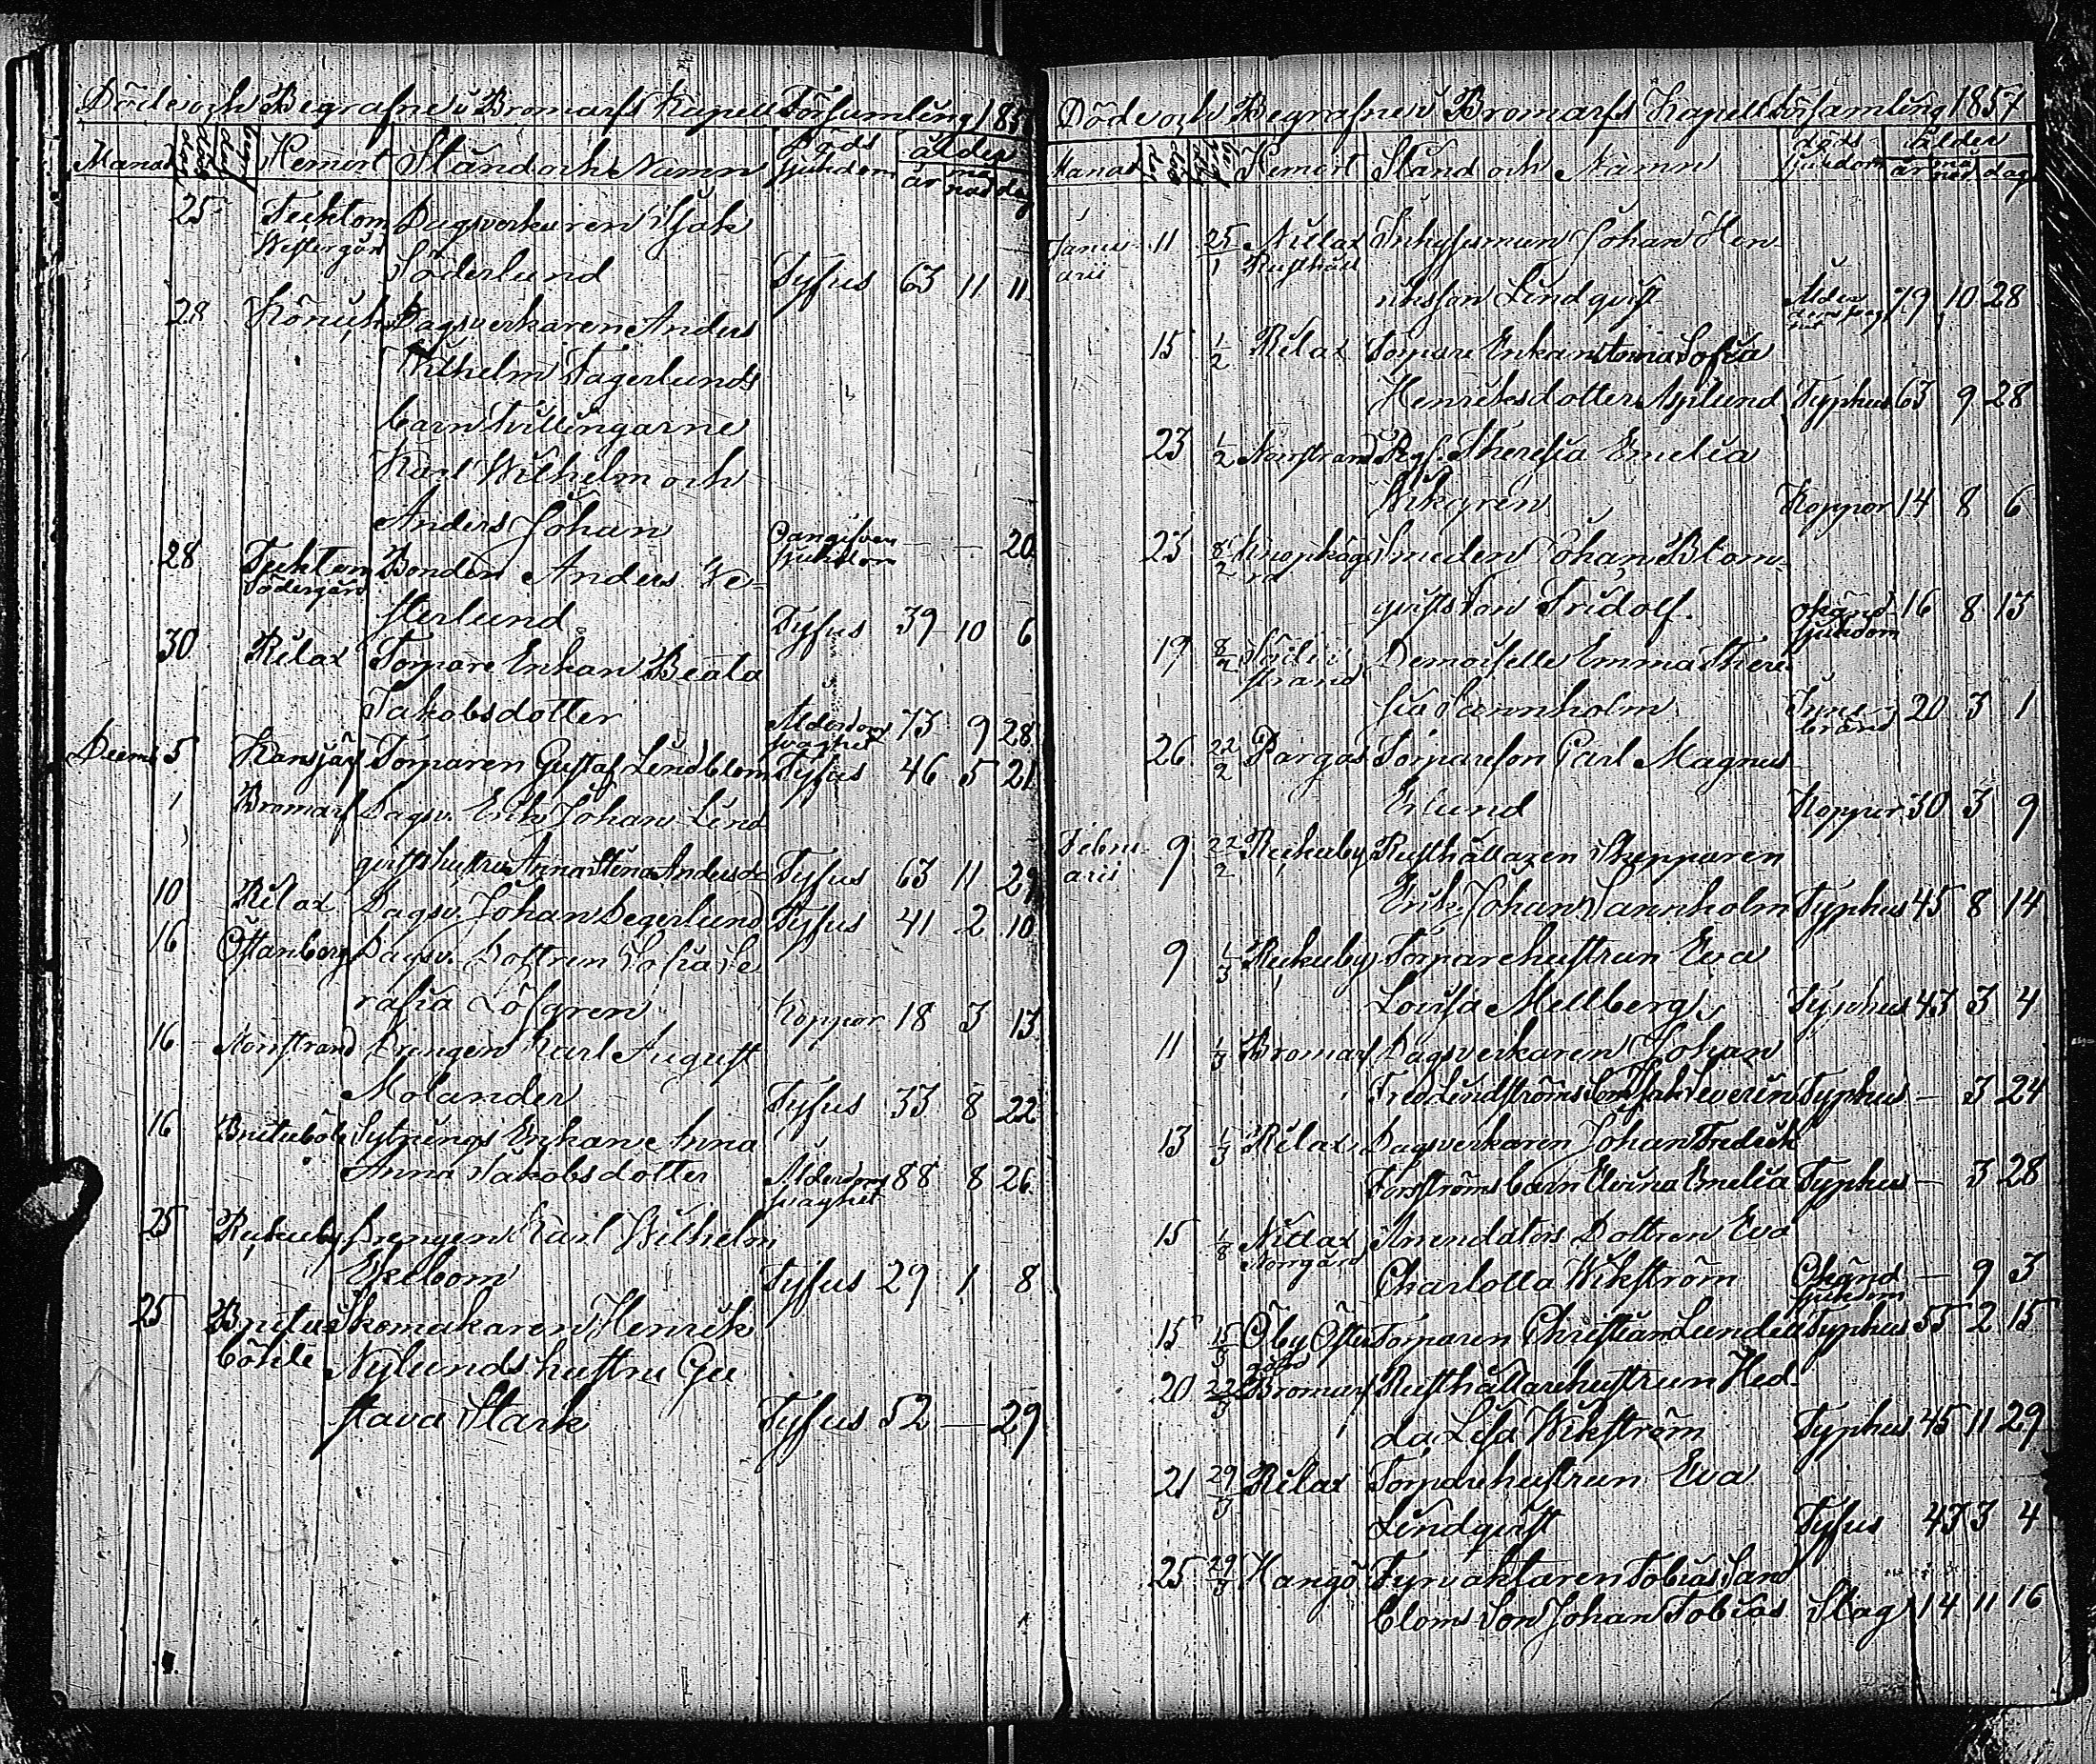 Döde och Begrafne i Bromarfs Kapell Församling 185
Månad Hemort Stånd och Namn Döds sjukdom ålder år månad dag
25 Tecktom Westergård Dagsverkaren Isak
Söderlund Tyfus 63 11 11
28 Dagsverkaren Anders
Wilhelm Fagerlunds
barn Tvillingarne
Karl Wilhelm och
Anders Johan Oangifven sjukdom — — 20
28 Södergård Bonden Anders We-
sterlund Tyfus 39 10 6
30 Rilax Torpare Enkan Beata
Jakobsdotter Ålderdoms svaghet 73 9 28
Decem 5 Torparen Gustaf Lindblom Tyfus 46 5 21
1 Bromarf Dagsv. Erik Johan Lind
qvists hustru Anna Stina Andersdo Tyfus 63 11 29
10 Rilax Dagsv. Johan Segerlund Tyfus 41 2 10
16 Östanberg Dagsv. Dottren Sofia Se
rafia Löfgren Koppor 18 3 13
16 Norrstrand Drengen Karl August
Molander Tyfus 33 8 22
16 Sytnings Enkan Anna
Anna Jakobsdotter Ålderdoms svaghet 88 8 26
25 Drengen Karl Wilhelm
Ekebom Tyfus 29 1 8
25 böhle Skomakaren Henrik
Nylunds hustru Gu
stava Stark Tyfus 52 — 29
Döde och Begrafne i Bromarfs Kapell Församling 1857
Månad Hemort Stånd och Namn döds sjukdom ålder år månad dag
Janu arii 11 25/1 Rusthåll Inhysesman Johan Hen
riksson Lindqvist 79 10 28
15 1/2 Rilax Torpare Enkan Sofia
Henriksdotter Asplund Typhus 63 9 28
23 1/2 Norrstrand Pig. Theresia Emelia
Wikgren Koppor 14 8 6
23 8/2 Smeden Johan Blom-
qvists Son Fridolf okänd sjukdom 16 8 13
19 8/2 Söder strand Demoiselle Emma There
sia Sannholm 20 3 1
26 22/2 Pargas Torpareson Carl Magnus
Erlund Koppor 30 3 9
Febru arii 9 22/2 Rusthållaren Skepparen
Erik Johan Sannholm Typhus 45 8 14
9 1/3 Torparehustrun Eva
Lovisa Mellberg Typhus 43 3 4
11 1/3 Bromarf Dagsverkaren Johan
Fred Lindströms Son Isak Severin Typhus — 3 24
13 1/3 Rilax Dagsverkaren Johan Fredrik
Forsströms barn Elvira Emelia Typhus — 3 28
15 1/8 Norrgård Arrendators Dottren Eva
Charlotta Wikström Okänd sjukdom — 9 3
15 15/3 Öby Öster gård Torparen Christian Typhus 55 2 15
20 22/3 Bromarf Rusthållarehustrun Hed-
da Lisa Wikström Typhus 45 11 29
21 29/3 Rilax Torparehustrun Eva
Lindqvist Tyfus 43 3 4
25 29/3 Hangö Fyrvaktaren Tobias Sand
bloms Son Johan Tobias Slag 14 11 16